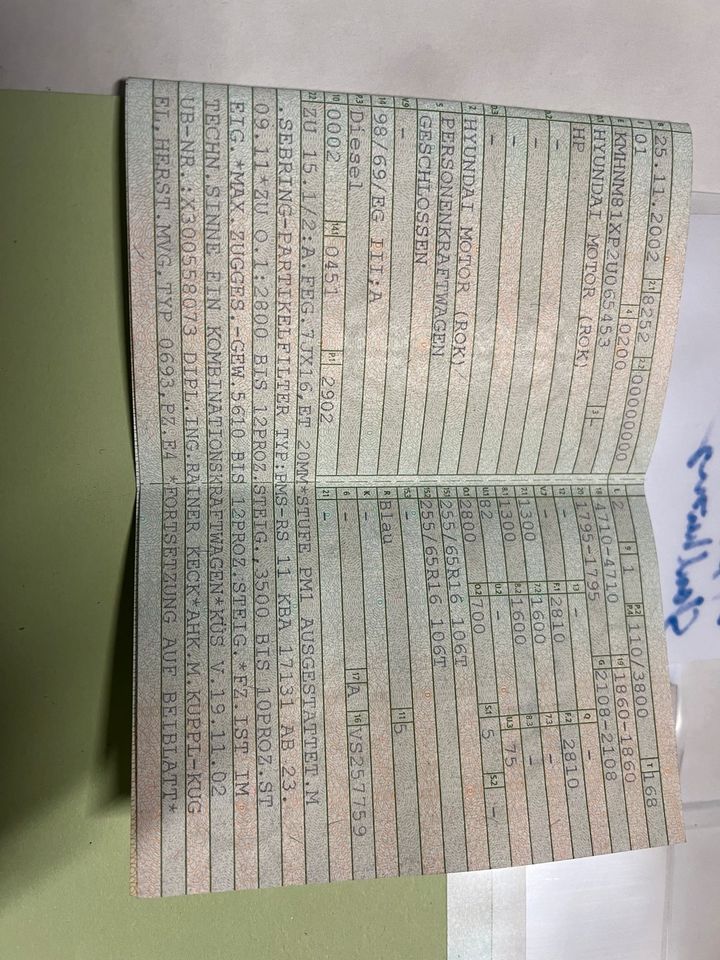 B 25.11.2002 2.1 8252 2.2 000000000
J 01 4 0200
E KMHNM81XP2U065453 3 -
D.1 HYUNDAI MOTOR (ROK)
HP
D.2 -
-
-
D.3 -
2 HYUNDAI MOTOR (ROK)/
5 PERSONENKRAFTWAGEN
GESCHLOSSEN
V.9 -
14 98/69/EG III;A
P.3 Diesel
10 0002 14.1 0451 P.1 2902
L 2 9 1 P.2 P.4 110/3800 T 168
18 4710-4710 19 1860-1860
20 1795-1795 G 2108-2108
12 - 13 - Q -
V.7 - F.1 2810 F.2 2810
7.1 1300 7.2 1600 7.3 -
8.1 1300 8.2 1600 8.3 -
U.1 82 U.2 - U.3 75
O.1 2800 O.2 700 S.1 5 S.2 -/
15.1 255/65R16 106T
15.2 255/65R16 106T
15.3 -
R Blau 11 5
K -
6 - 17 A 16 VS257759
21 -
22 ZU 15.1/2:A.FEG.7JX16,ET 20MM*STUFE PM1 AUSGESTATTET.M
.SEBRING-PARTIKELFILTER TYP:PMS-RS 11 KBA 17131 AB 23.
09.11*ZU O.1:2800 BIS 12PROZ.STEIG.,3500 BIS 10PROZ.ST
EIG.*MAX.ZUGGES.-GEW.5610 BIS 12PROZ.STEIG.*FZ.IST IM
TECHN.SINNE EIN KOMBINATIONSKRAFTWAGEN*KÜS V.19.11.02
UB-NR.:X300558073 DIPL.ING.RAINER KECK*AHK.M.KUPPL-KUG
EL,HERST.MVG,TYP 0693,PZ:E4 *FORTSETZUNG AUF BEIBLATT*